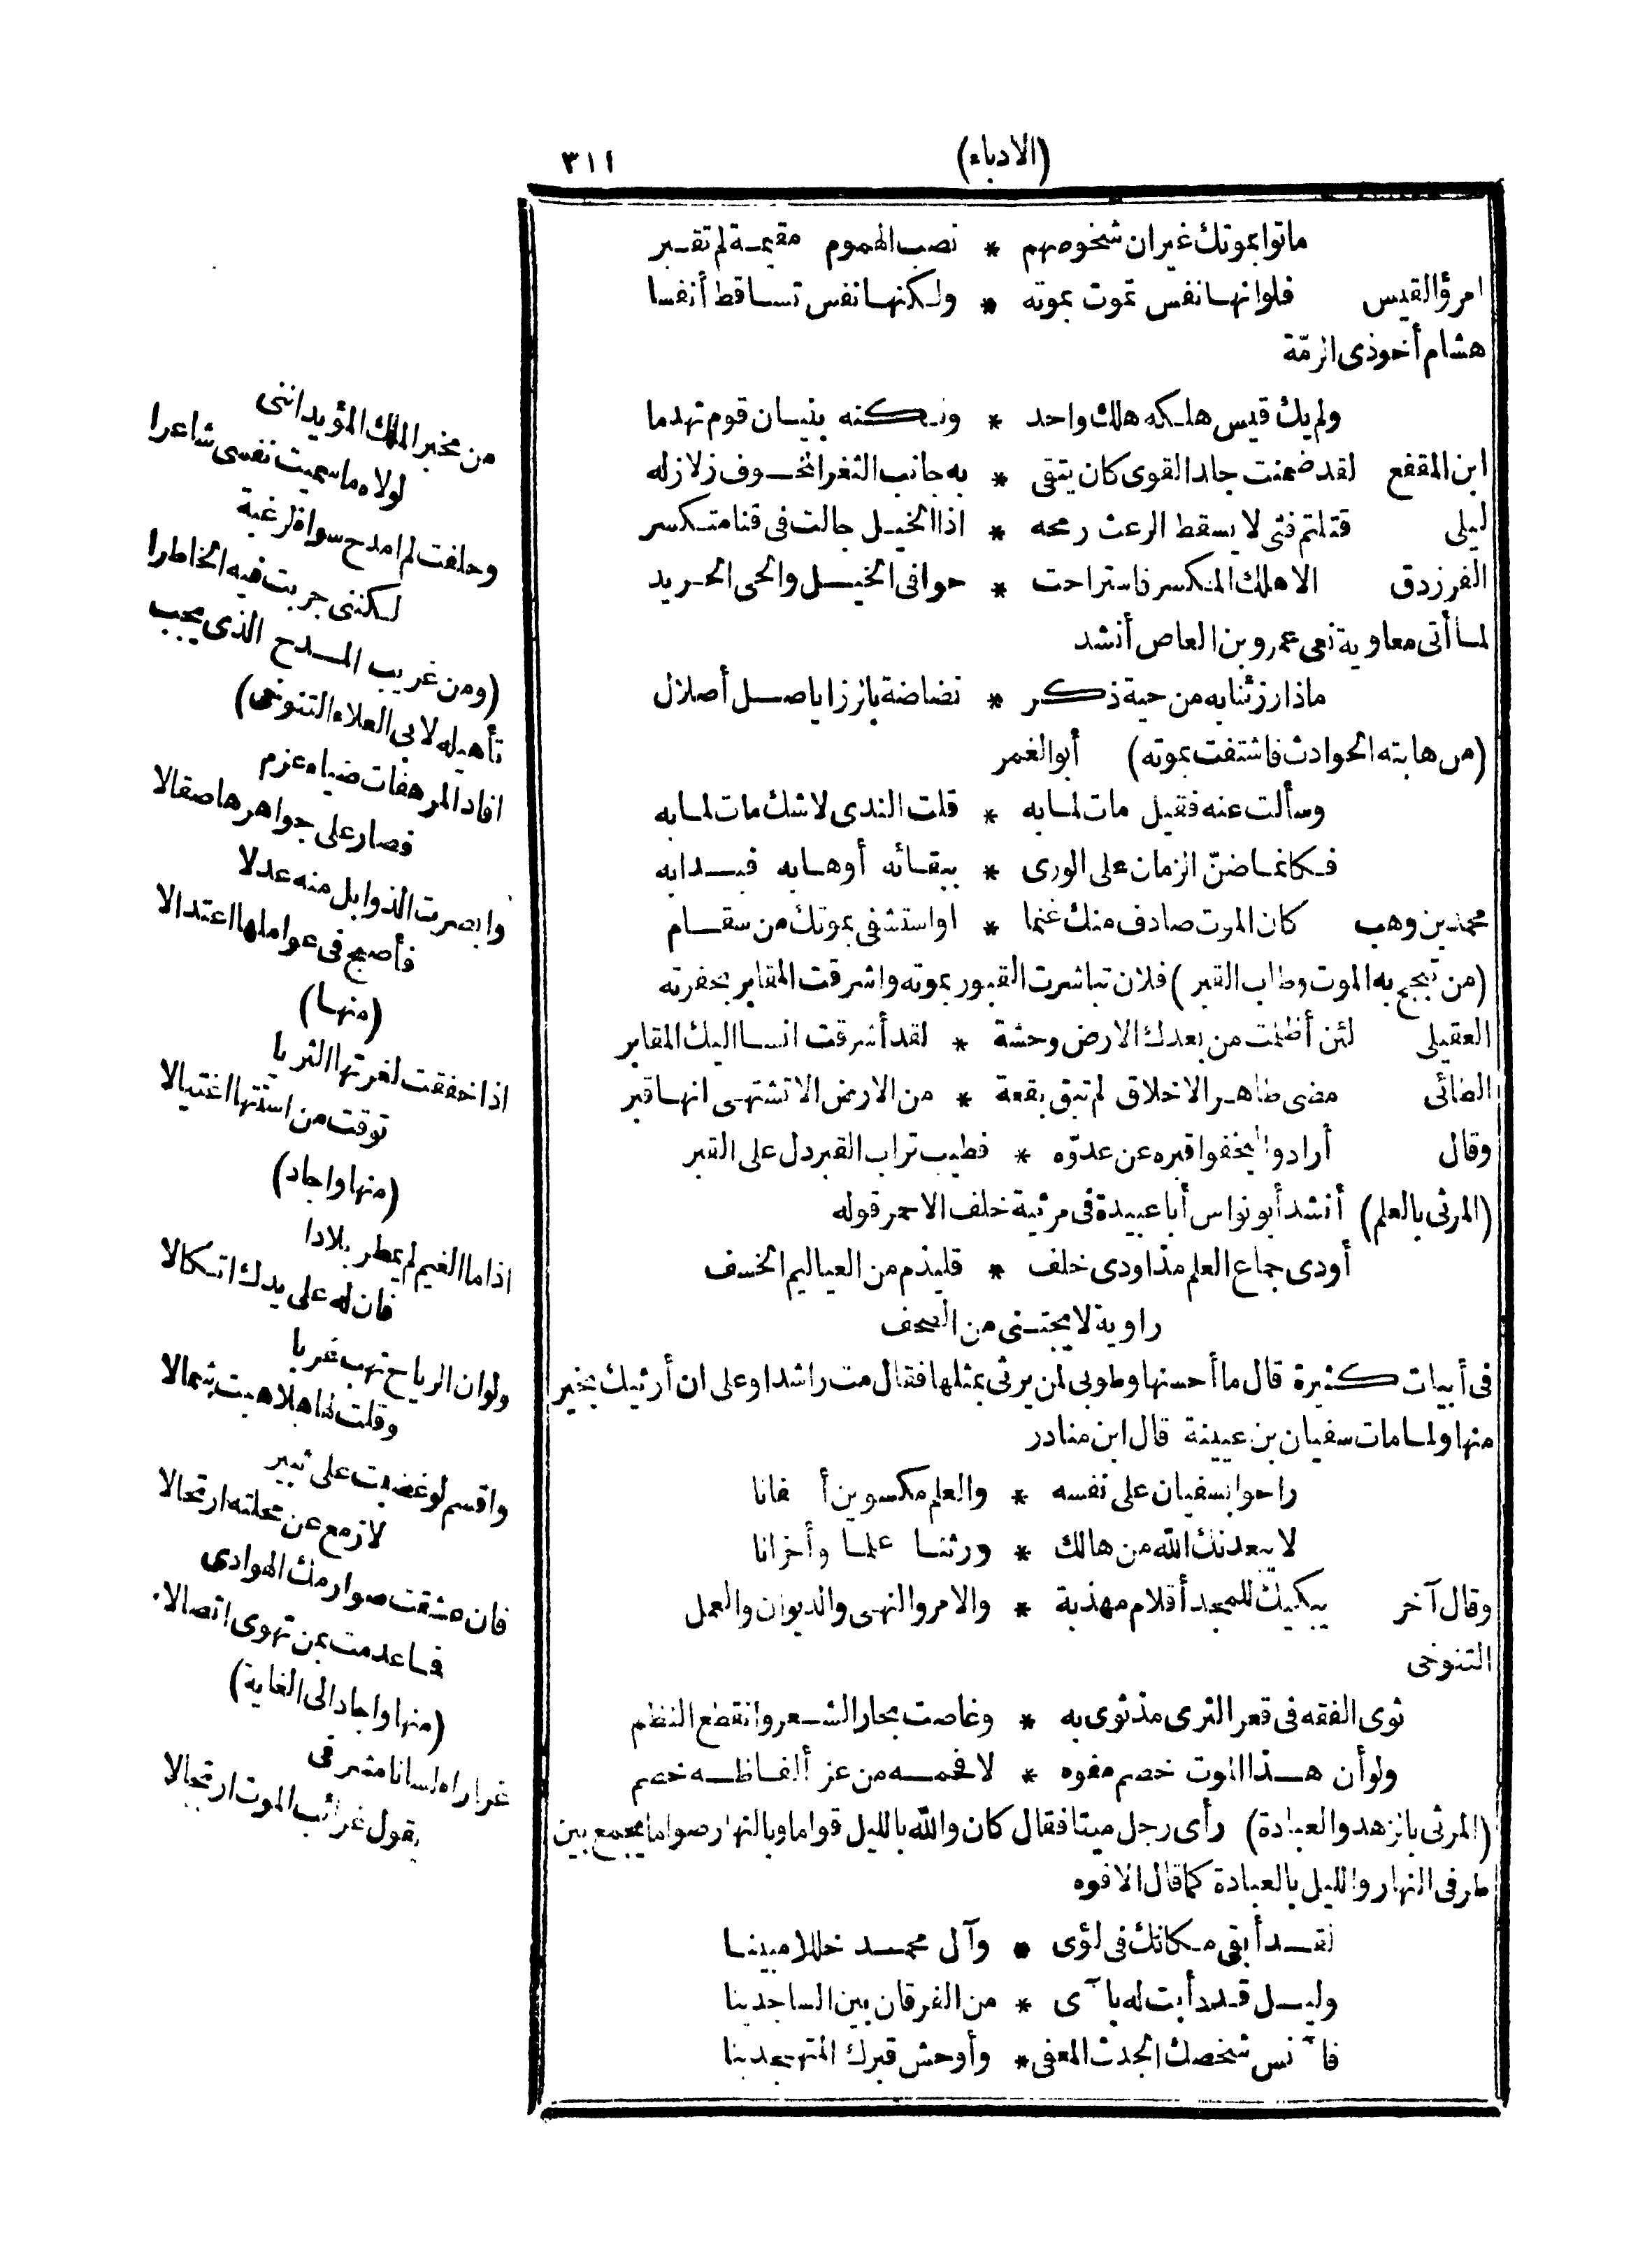 (الادباء) ٣١١
ماتوا بموتك غير ان شخوصهم * نصب الهموم مقيمة لم تقبر
امرؤ القيس فلو انها نفس تموت بموته * ولكنها نفس تساقط أنفسا
هشام أخو ذى الرمّة
ولم يك قيس هلكه هلك واحد * ولكنه بنيان قوم تهدما
ابن المقفع لقد ضمنت جلد القوى كان يتقى * به جانب الثغر المخوف زلازله
ليلى قتلتم فتى لا يسقط الرعث رمحه * اذا الخيل جالت فى قنا متكسر
الفرزدق الا هلك المنكسر فاستراحت * حوافى الخيل والحى الحريد
لما أتى معاوية نعى عمرو بن العاص أنشد
ماذا رزئنا به من حية ذكر * نضناضة بالرزايا صل أصلال
(من هابته الحوادث فاشتفت بموته) أبو الغمر
وسألت عنه فقيل مات لما به * قلت الندى لا شك مات لما به
فكانما ضنّ الزمان على الورى * ببقائه أو هابه فبدا به
محمد بن وهب كان الموت صادف منك غنما * او استشفى بموتك من سقام
(من تبجح به الموت وطاب القبر) فلان تباشرت القبور بموته واشرقت المقابر بحفرته
العقيلى لئن أظلمت من بعدك الارض وحشة * لقد أشرقت انسا اليك المقابر
الطائى مضى طاهر الاخلاق لم تبق بقعة * من الارض الا تشتهى انها قبر
وقال أرادوا ليخفوا قبره عن عدوّه * فطيب تراب القبر دل على القبر
(المرثى بالعلم) أنشد أبو نواس أبا عبيدة فى مرثية خلف الاحمر قوله
أودى جماع العلم مذ اودى خلف * قليذم من العياليم الخسف
راوية لا يجتنى من الصحف
فى أبيات كثيرة قال ما أحسنها وطوبى لمن يرثى بمثلها فقال مت راشدا وعلى ان أرثيك بخير
منها ولما مات سفيان بن عيينة قال ابن مناذر
راحوا بسفيان على نفسه * والعلم مكسوين أ فانا
لا يبعدنك الله من هالك * ورثنا علما وأخزانا
وقال آخر يبكيك للمجد أقلام مهذبة * والامر والنهى والديوان والعمل
التنوخى
ثوى الفقه فى قعر الثرى مذ ثوى به * وغاصت بحار الشعر وانقطع النظم
ولو أن هذا الموت خصم مفوه * لا فحمه من عز ألفاظه خصم
(المرثى بالزهد والعبادة) رأى رجل ميتا فقال كان والله بالليل قواما وبالنهار صواما يجمع بين
طرفى النهار والليل بالعبادة كما قال الافوه
لقد أبقى مكانك فى لؤى * وآل محمد خللا مبينا
وليل قد دأبت له بآى * من الفرقان بين الساجدينا
فآنس شخصك الجدث المعفى * وأوحش قبرك المتهجدينا
من مخبر الملك المؤيد اننى
لولاه ما سميت نفسى شاعرا
وحلفت لم امدح سواه لرغبة
لكننى جربت فيه الخاطرا
(ومن غريب المدح الذى يجب
تأهيله لابى العلاء التنوخى)
افاد المرهفات ضياء عزم
فصار على جواهرها صقالا
وابصرت الذوابل منه عدلا
فأصبح فى عواملها اعتدالا
(منها)
اذا خفقت لغرتها الثريا
توقت من اسنتها اغتيالا
(منها واجاد)
اذا ما الغيم لم يمطر بلادا
فان له على يدك اتكالا
ولو ان الرياح تهب غربا
وقلت لها هلا هبت شمالا
واقسم لو غضبت على ثبير
لازمع عن محلته ارتحالا
فان عشقت صوارمك الهوادى
فما عدمت بمن تهوى اتصالا
(منها واجاد الى الغاية)
غراراه لسانا مشرفى
يقول غرائب الموت ارتجالا